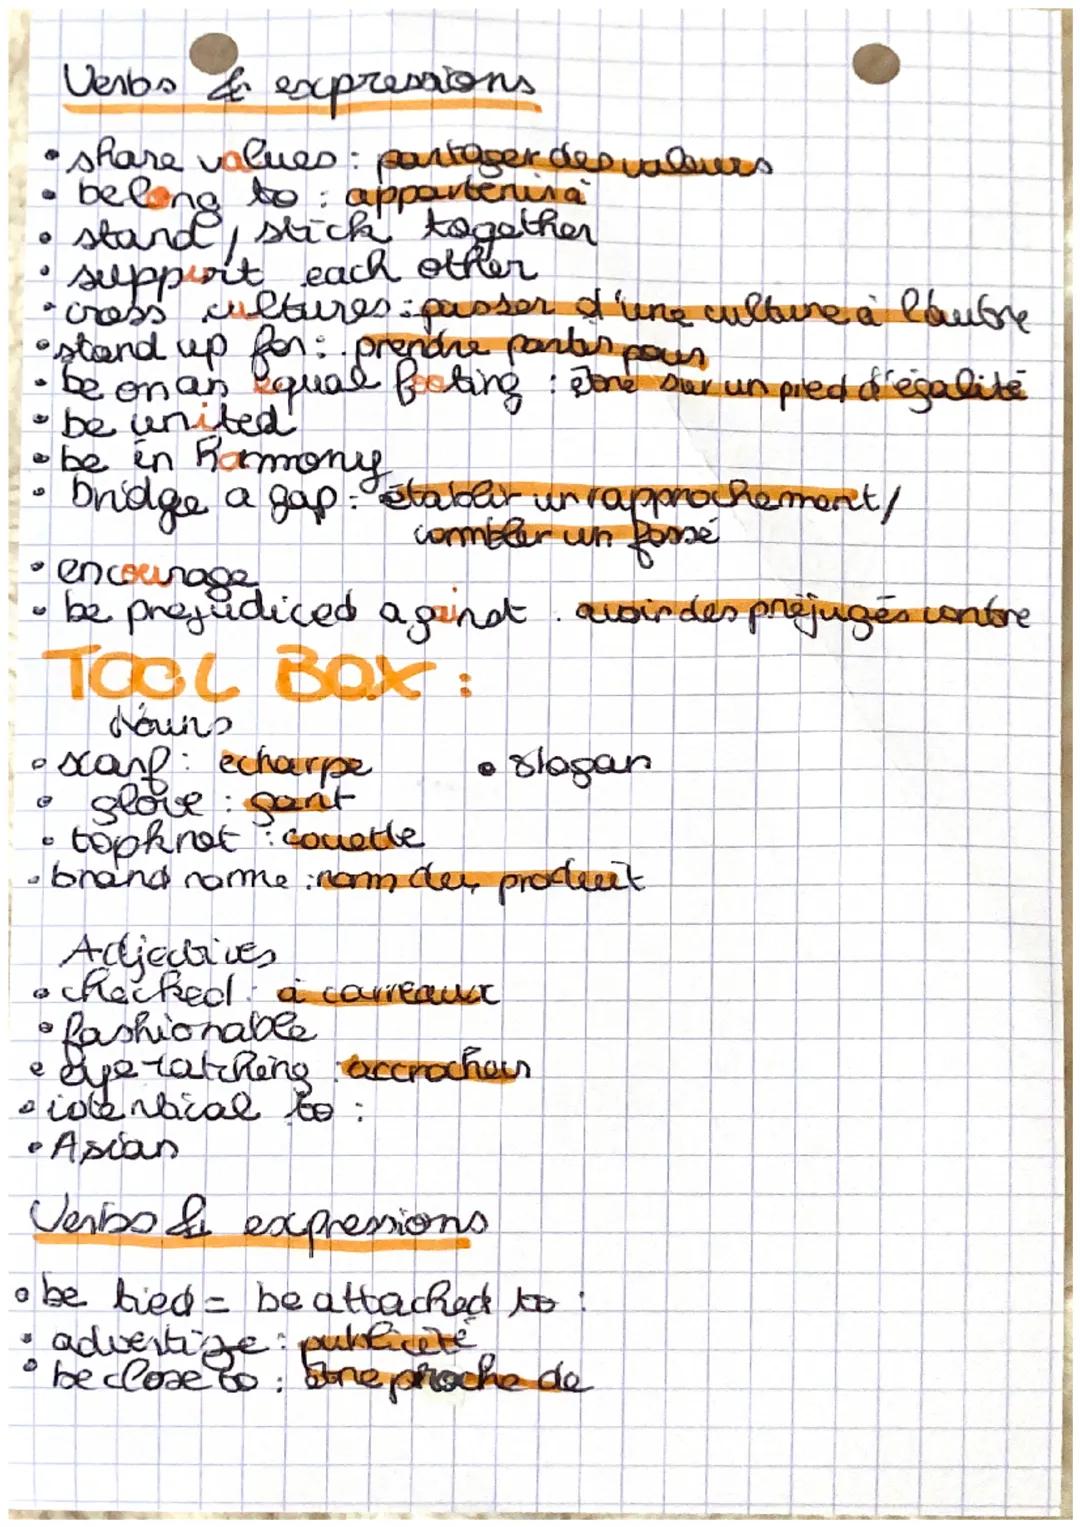 Verbs & expressions
• share values : partager des valeurs
• belong to : appartenir à
• stand / stick together
• support each other
• cross cultures : passer d'une culture à l'autre
• stand up for : prendre parti pour
• be on an equal footing : être sur un pied d'égalité
• be united
• be in harmony
• bridge a gap : établir un rapprochement /
combler un fossé
• encourage
• be prejudiced against : avoir des préjugés contre
TOOL BOX :
Nouns
• scarf : écharpe • slogan
• glove : gant
• topknot : couette
• brand name : nom du produit
Adjectives
• checked : à carreaux
• fashionable
• eye-catching : accrocheur
• identical to :
• Asian
Verbs & expressions
• be tied = be attached to :
• advertize : publicité
• be close to : être proche de